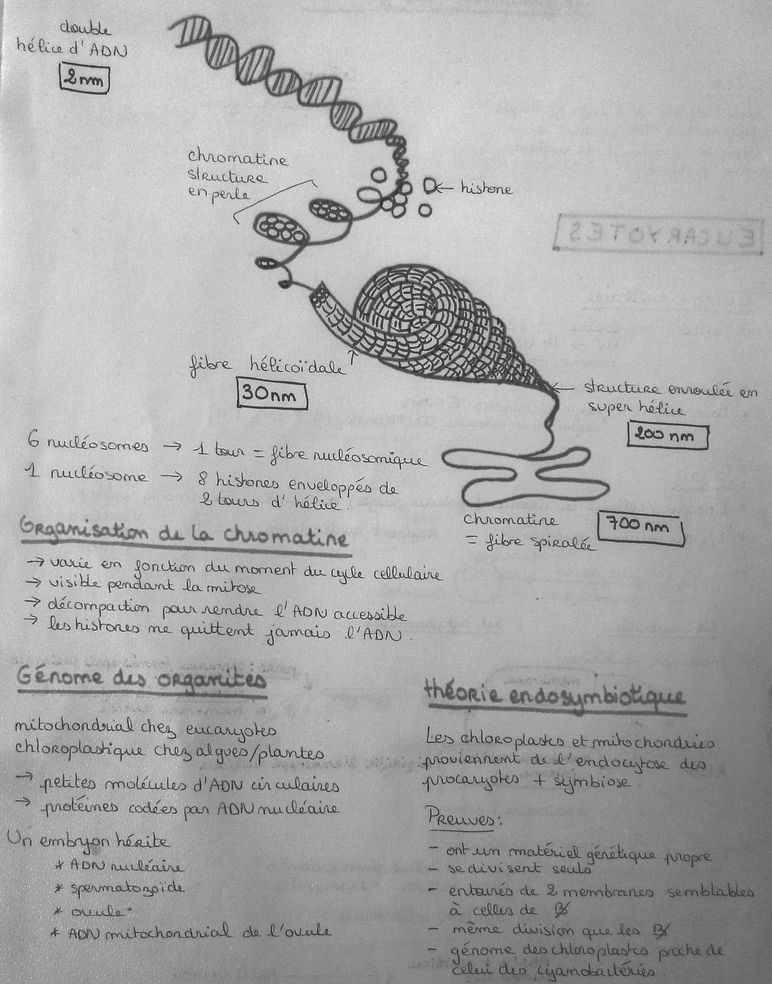 double
hélice d'ADN
2 nm
chromatine
structure
en perle
histone
EUCARYOTES
fibre hélicoïdale
30 nm
structure enroulée en
super hélice
200 nm
6 nucléosomes → 1 tour = fibre nucléosomique
1 nucléosome → 8 histones enveloppés de
2 tours d'hélice.
chromatine
= fibre spiralée
700 nm
Organisation de la chromatine
→ varie en fonction du moment du cycle cellulaire
→ visible pendant la mitose
→ décompaction pour rendre l'ADN accessible
→ les histones ne quittent jamais l'ADN.
Génome des organites
mitochondrial chez eucaryotes
chloroplastique chez algues/plantes
→ petites molécules d'ADN circulaires
→ protéines codées par ADN nucléaire
Un embryon hérite
* ADN nucléaire
* spermatozoïde
* ovule
* ADN mitochondrial de l'ovule
théorie endosymbiotique
Les chloroplastes et mitochondries
proviennent de l'endocytose des
procaryotes + symbiose.
Preuves:
- ont un matériel génétique propre
- se divisent seuls
- entourés de 2 membranes semblables
à celles de
- même division que les
- génome des chloroplastes proche de
celui des cyanobactéries.